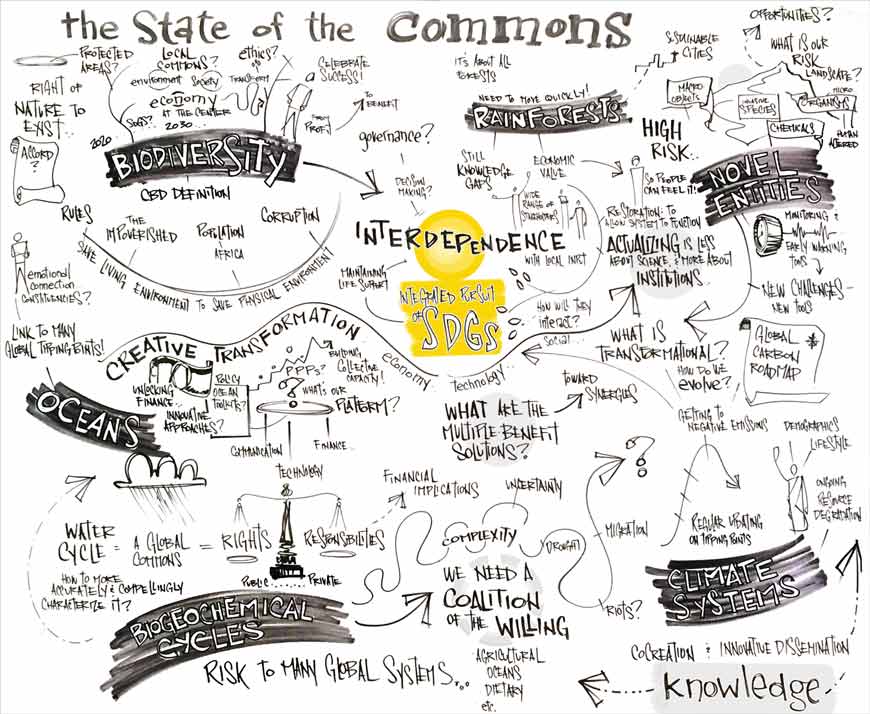 the State of the Commons
PROTECTED
AREAS?
LOCAL
COMMONS?
ethics?
environment
Society
TRANSFORM
economy
AT THE CENTER
SDGs?
2020
2030
CELEBRATE
a SUCCESS!
TO
BENEFIT
FROM
PROFIT
RIGHT OF
NATURE TO
EXIST...
ACCORD?
BIODIVERSITY
CBD DEFINITION
RULES
THE
IMPOVERISHED
POPULATION
AFRICA
CORRUPTION
SAVE LIVING ENVIRONMENT TO SAVE PHYSICAL ENVIRONMENT
emotional
connection
CONSTITUENCIES?
LINK TO MANY
GLOBAL TIPPING POINTS!
governance?
DECISION
MAKING?
IT'S ABOUT ALL
FORESTS
NEED TO MOVE QUICKLY!
RAINFORESTS
STILL
KNOWLEDGE
GAPS
ECONOMIC
VALUE
WIDE
RANGE OF
STAKEHOLDERS
WITH LOCAL INPUT
SUSTAINABLE
CITIES
OPPORTUNITIES?
WHAT IS OUR
RISK
LANDSCAPE?
MACRO
OBJECTS
INVASIVE
SPECIES
MICRO
ORGANISMS
CHEMICALS
HUMAN
ALTERED
HIGH
RISK..
SO PEOPLE
CAN FEEL IT!
NOVEL
ENTITIES
RESTORATION: TO
ALLOW SYSTEM TO FUNCTION
ACTUALIZING IS LESS
ABOUT SCIENCE, & MORE ABOUT
INSTITUTIONS
MONITORING &
EARLY WARNING
TOOLS
NEW CHALLENGES
NEW TOOLS
INTERDEPENDENCE
MAINTAINING
LIFE SUPPORT
INTEGRATED PURSUIT
OF SDGs
HOW WILL THEY
interact?
SOCIAL...
economy...
technology...
CREATIVE TRANSFORMATION
UNLOCKING
FINANCE...
INNOVATIVE
APPROACHES?
POLICY
OCEAN
TOOLKITS?
PPPs?
BUILDING
COLLECTIVE
CAPACITY!
WHAT'S OUR
PLATFORM?
COMMUNICATION
FINANCE...
TECHNOLOGY
OCEANS
WHAT IS
TRANSFORMATIONAL?
HOW DO WE
evolve?
GLOBAL
CARBON
ROADMAP
TOWARD
SYNERGIES
WHAT ARE THE
MULTIPLE BENEFIT
SOLUTIONS?
GETTING TO
NEGATIVE EMISSIONS
DEMOGRAPHICS
LIFESTYLE
ONGOING
RESOURCE
DEGRADATION
REGULAR UPDATING
ON TIPPING POINTS
CLIMATE
SYSTEMS
FINANCIAL
IMPLICATIONS
UNCERTAINTY
COMPLEXITY
DROUGHT
MIGRATION
RIOTS?
WATER
CYCLE = A GLOBAL
COMMONS = RIGHTS RESPONSIBILITIES
PUBLIC.....PRIVATE
HOW TO MORE
ACCURATELY & COMPELLINGLY
CHARACTERIZE IT?
BIOGEOCHEMICAL
CYCLES
RISK TO MANY GLOBAL SYSTEMS...
WE NEED A
COALITION
OF THE WILLING
AGRICULTURAL
OCEANS
DIETARY
etc.
COCREATION & INNOVATIVE DISSEMINATION
knowledge